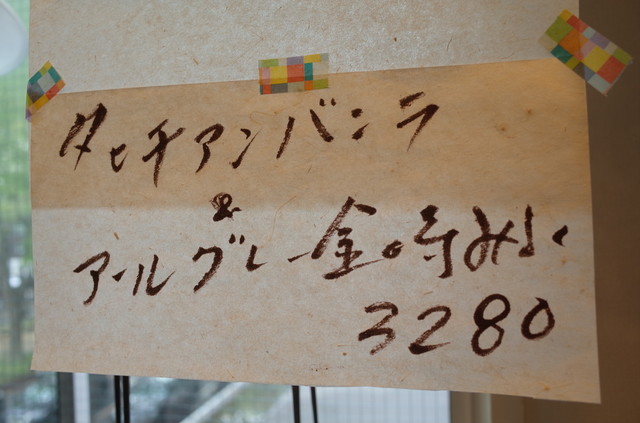 タヒチアンバニラ
&
アールグレー金時みるく
3280